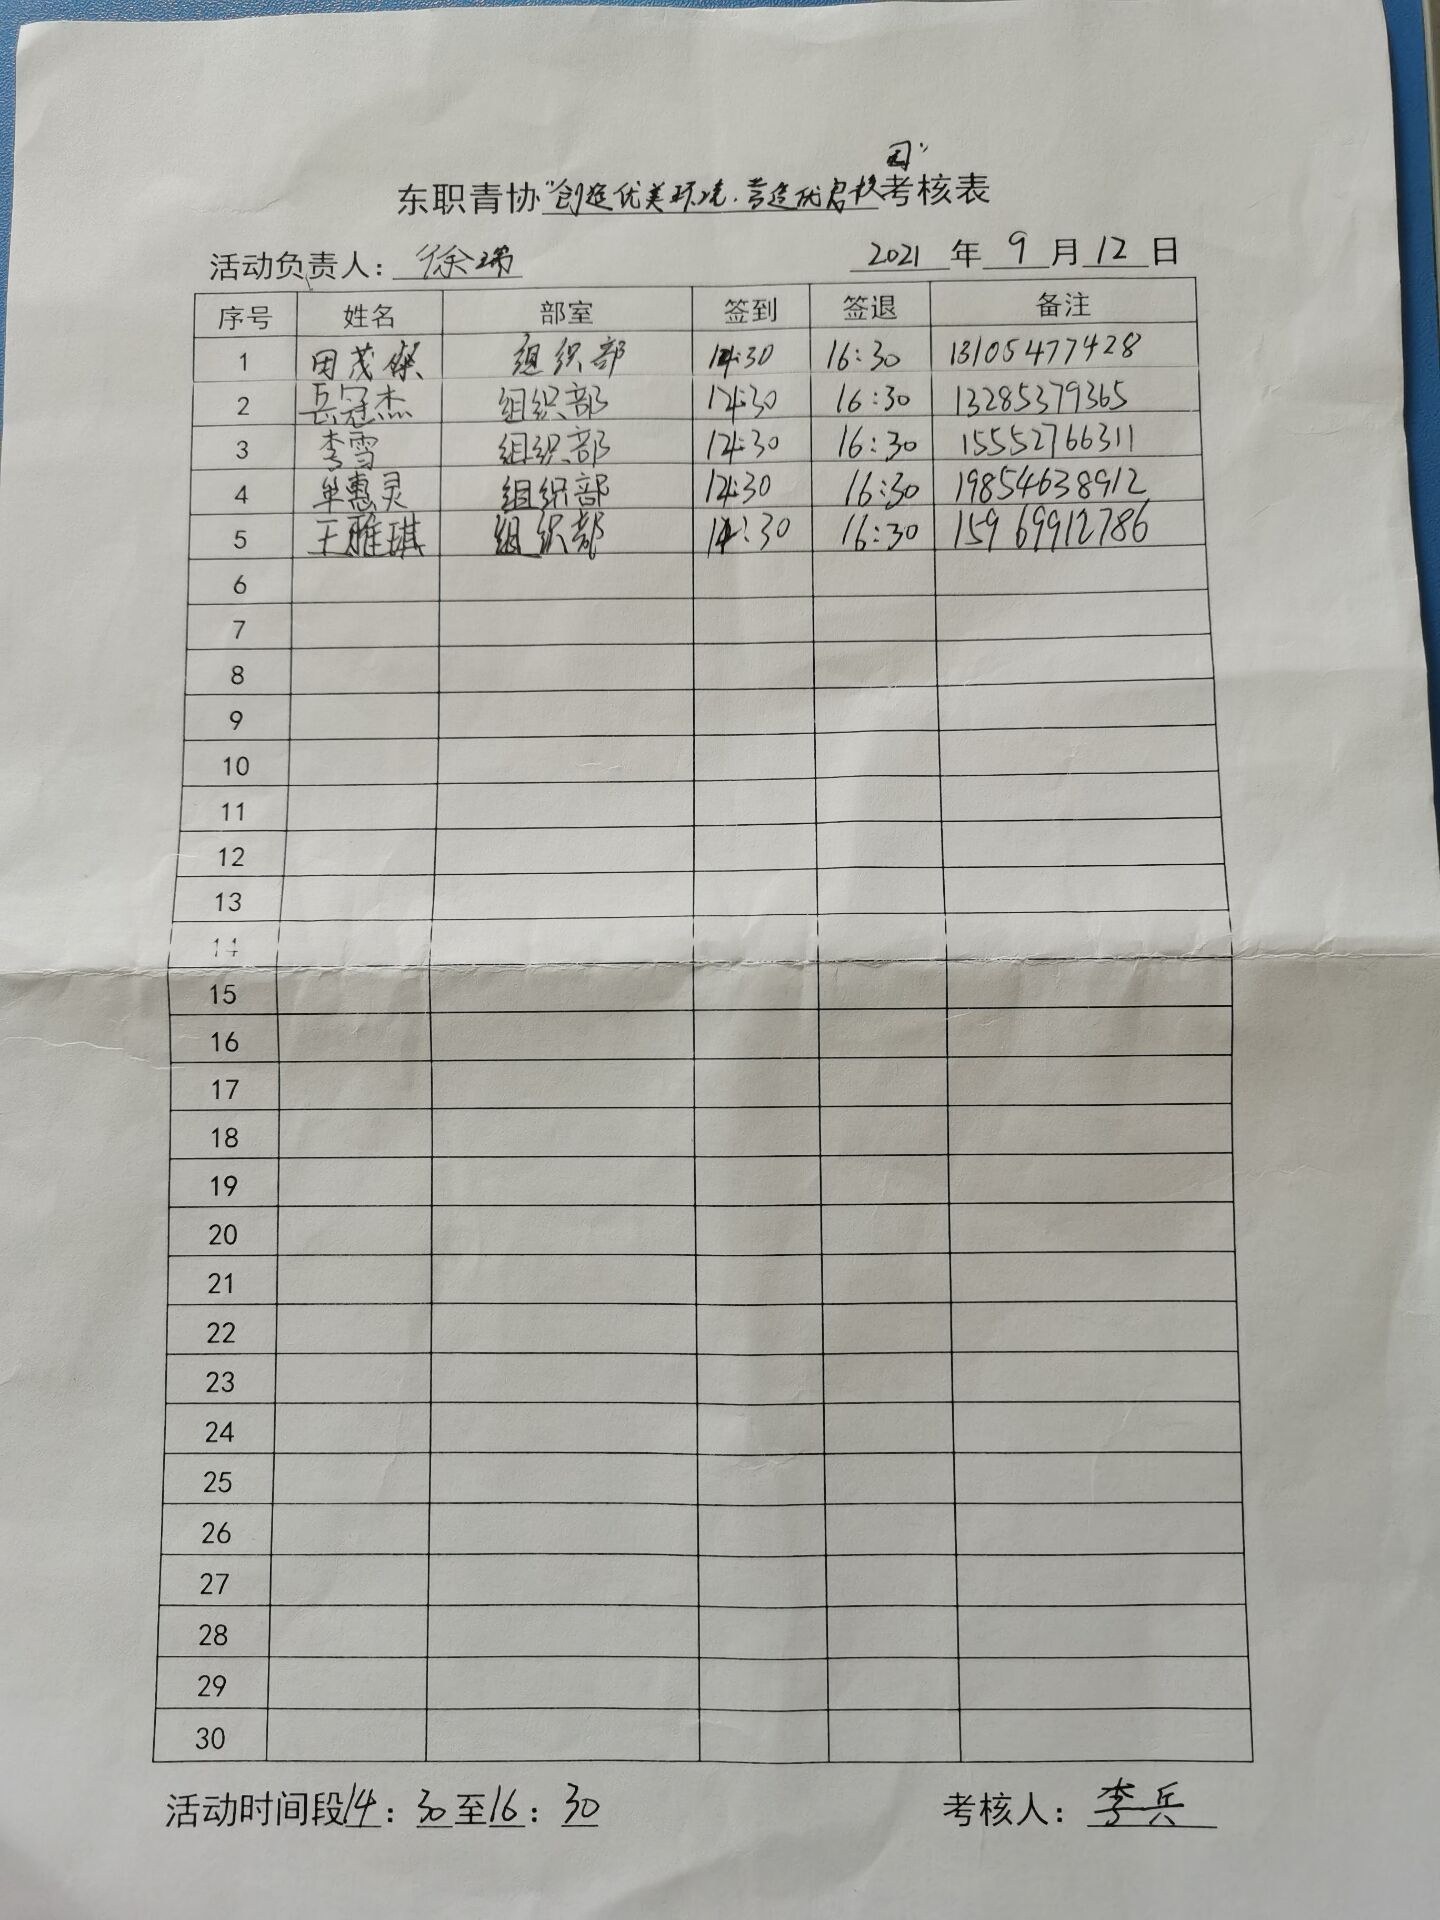 东职青协"创造优美环境.营造优良校园"考核表
活动负责人：徐瑞 2021年9月12日
序号 姓名 部室 签到 签退 备注
1 田茂燦 组织部 14:30 16:30 13105477428
2 岳冠杰 组织部 14:30 16:30 13285379365
3 李雪 组织部 14:30 16:30 15552766311
4 单惠灵 组织部 14:30 16:30 19854638912
5 王雅琪 组织部 14:30 16:30 15969912786
6
7
8
9
10
11
12
13
14
15
16
17
18
19
20
21
22
23
24
25
26
27
28
29
30
活动时间段14：30至16：30 考核人：李兵